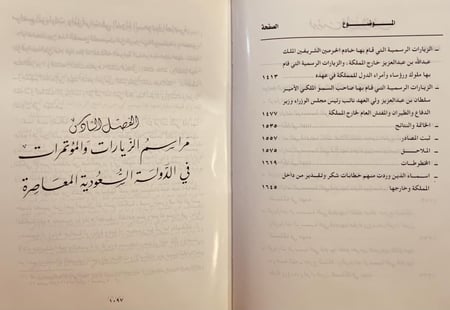 الموضوع الصفحة
– الزيارات الرسمية التي قام بها خادم الحرمين الشريفين الملك
عبدالله بن عبدالعزيز خارج المملكة، والزيارات الرسمية التي قام
بها ملوك ورؤساء وأمراء الدول للمملكة في عهده ١٤١٣
– الزيارات الرسمية التي قام بها صاحب السمو الملكي الأمير
سلطان بن عبدالعزيز ولي العهد نائب رئيس مجلس الوزراء وزير
الدفاع والطيران والمفتش العام خارج المملكة ١٤٧٧
– الخاتمة والنتائج ١٥٣٥
– ثبت المصادر ١٥٥٧
– الملاحق ١٥٦٥
– المخطوطات ١٦١٩
– اسماء الذين وردت منهم خطابات شكر وتقدير من داخل
المملكة وخارجها ١٦٤٥
الفصل السادس
مراسم الزيارات والمؤتمرات
في الدولة السعودية المعاصرة
١٠٩٧